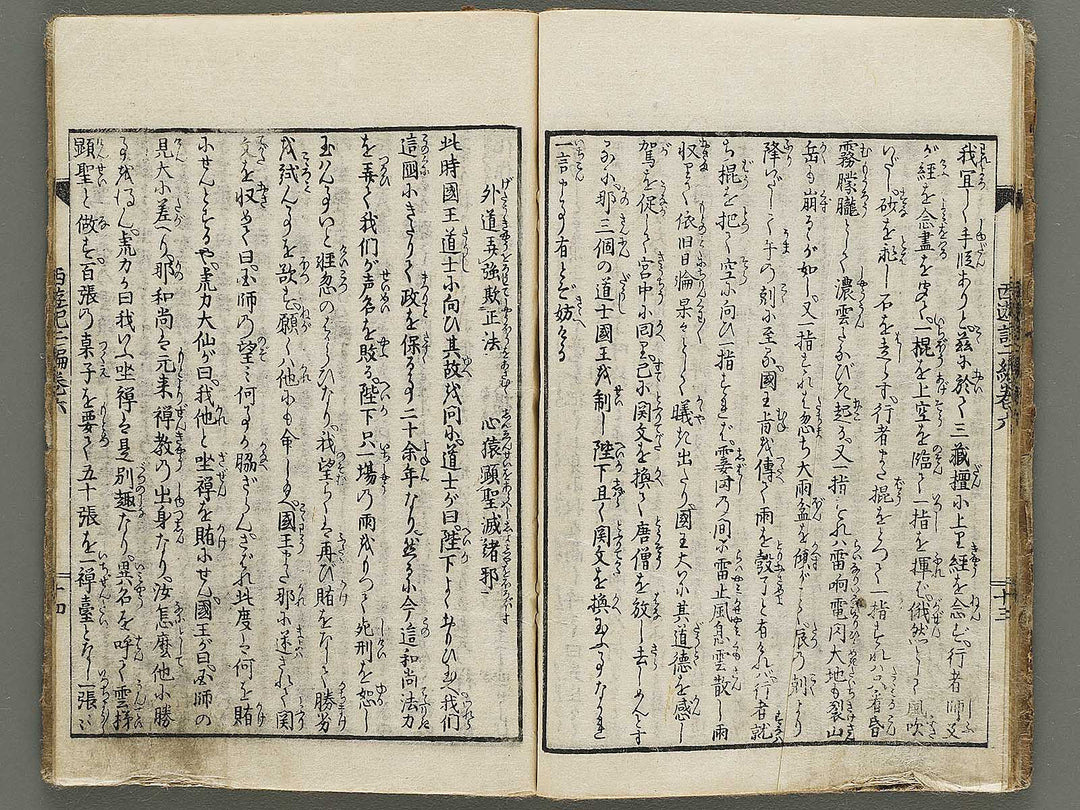 我冝しく手段ありと茲に於て三藏壇に上り經を念ず行者師父
が經を念盡を窺て一棍を上空を臨で一指を揮ば俄然として風吹
いだし砂を飛し石を走らす行者また棍をとつて一指すれバ昏
霧朦朧として濃雲たなびき起り又一指すれバ雷响電閃大地も裂山
岳も崩るゝが如し又一指すれバ忽ち大雨盆を傾がごとし辰の剋より
降いだして午の刻に至る國王肯を傳て雨を彀了と有けれバ行者就
ち棍を把て空に向ひ一指すれば霎時の間に雷止風息雲散し雨
収りて依旧日輪杲々として曦き出たり國王大いに其道徳を感じ
駕を促して宮中に回り已に関文を換て唐僧を放し去しめんとす
るに那三個の道士國王を制し陛下且く関文を換玉ふ事なかれ
一言申す事有とぞ妨ける
西遊記二編巻六
二十三
外道弄強欺正法　心猿顕聖滅諸邪
此時國王道士に向ひ其故を問に道士が曰陛下よく思ひ玉へ我們
這國にきたりて政を保る事二十余年なり然るに今這和尚法力
を弄て我們が声名を敗る陛下只一場の雨をもつて死刑を恕し
玉ハん事いと軽忽のはからひなり我望らくハ再び賭をなして勝劣
を試んことを欲す願くハ他にも命じ玉へ國王また那に遂されて関
文を収め曰国師の望ミ何ことか脇ざらんされバ此度ハ何を賭
にせんとするや虎力大仙が曰我他と坐禅を賭にせん國王が曰国師の
見大に差へり那和尚ハ元来禅教の出身なり汝怎麼他に勝
事を得ん虎力が曰我いふ坐禅ハ是別趣なり異名を呼て雲梯
顕聖と做す百張の桌子を要て五十張を一禅臺となし一張ゞ
西遊記二編巻六
二十四